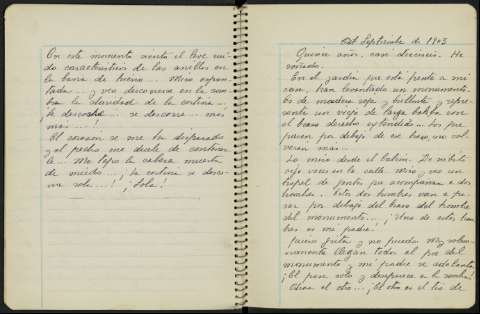 En este momento siento el leve rui-
do característico de las anillas en
la barra de hierro... Miro espan-
tada... y veo descorrerse en la som-
bra la claridad de la cortina...,
¡Se descorre... se descorre... más
más...!
El corazón se me ha disparado
y el pecho me duele de contener-
le... Me tapo la cabeza muerta
de miedo... ¡la cortina se desco-
rre sola...! ¡Sola!
Septiembre de 1943
Quince años, casi dieciseis. He
soñado.
En el jardín que está frente a mi
casa, han levantado un monumento.
Es de madera roja y brillante y repre-
senta un viejo de larga barba con
el brazo derecho extendido. Los que
pasen por debajo de ese brazo, no vol-
verán más...
Lo miro desde el balcón. De súbito
oigo voces en la calle. Miro y veo un
tropel de gentes que acompañan a dos
hombres. Estos dos hombres van a pa-
sar por debajo del brazo del hombre
del monumento... ¡Uno de estos hom-
bres es mi padre!
Quiero gritar y no puedo. Muy solem-
nemente llegan todos al pie del
monumento y mi padre se adelanta,
¡Él pasa solo y desaparece en la sombra!
Ahora el otro... ¡El otro es el tío de